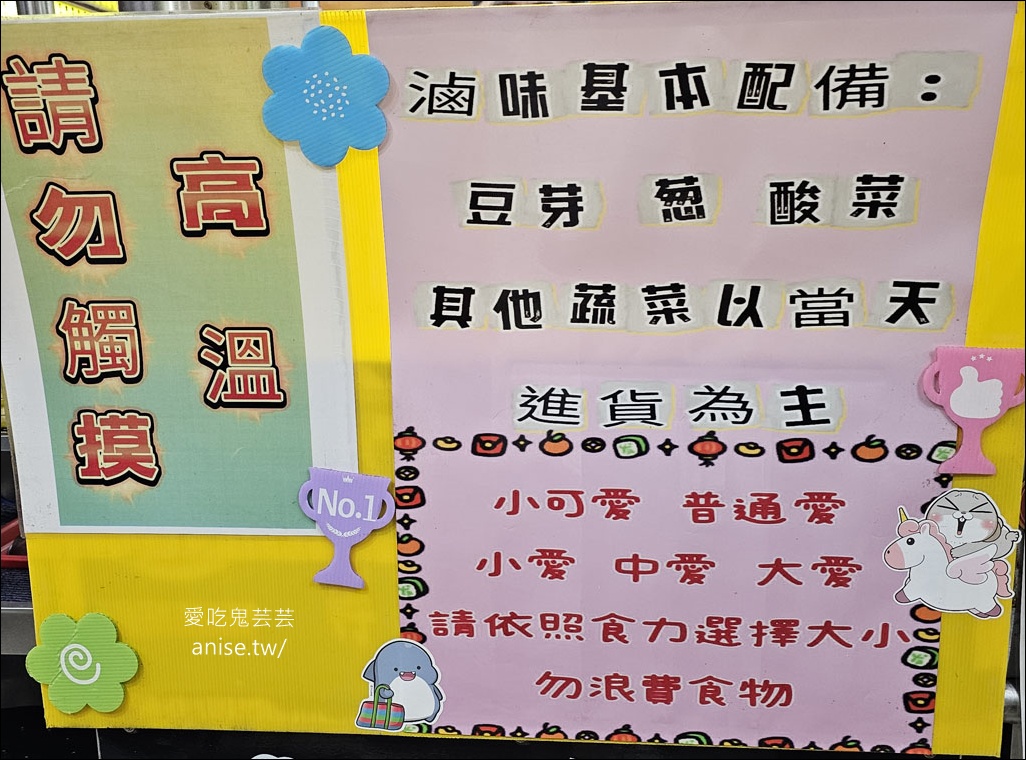 高溫
請勿觸摸
滷味基本配備：
豆芽 蔥 酸菜
其他蔬菜以當天
進貨為主
小可愛 普通愛
小愛 中愛 大愛
請依照食力選擇大小
勿浪費食物
No.1
愛吃鬼芸芸
anise.tw/